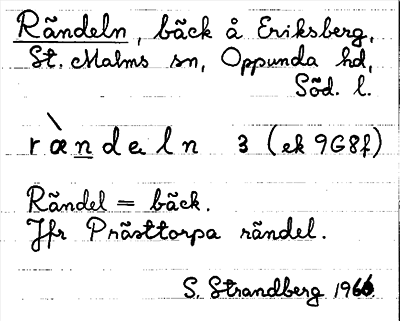 Rändeln, bäck å Eriksberg,
St. Malms sn, Oppunda hd,
Söd. l.
r æ̀ n d e l n 3 (ek 9G8f)
Rändel = bäck.
Jfr Prästtorpa rändel.
S. Strandberg 1966.